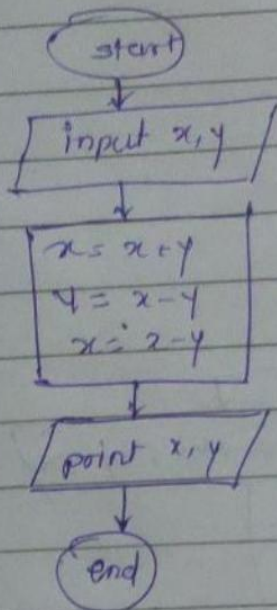 start
input x, y
x = x + y
y = x - y
x = x - y
print x, y
end